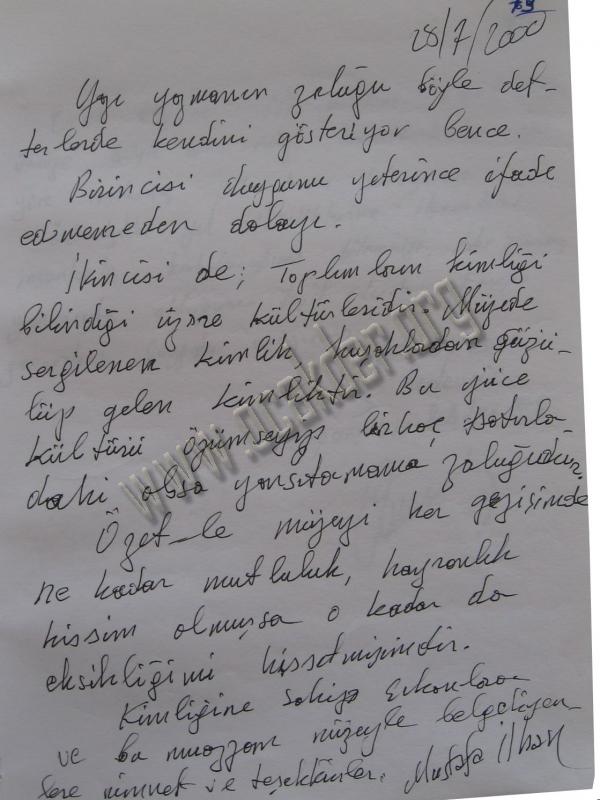 89
28/7/2000
Yazı yazmanın zorluğu böyle def-
terlerde kendini gösteriyor bence.
Birincisi duygunu yeterince ifade
edememeden dolayı.
İkincisi de; Toplumların kimliği
bilindiği üzere kültürleridir. Müzede
sergilenen kimlik, kuşaklardan süzü-
lüp gelen kimliktir. Bu yüce
kültürü özümseyip birkaç satırla
dahi olsa yansıtamama zorluğudur.
Özetle müzeyi her gezişimde
ne kadar mutluluk, hayranlık
hissim olmuşsa o kadar da
eksikliğimi hissetmişimdir.
Kimliğine sahip
ve bu muazzam müzeyle belgeliyen-
lere minnet ve teşekkürler. Mustafa İlhan
www.ocakder.org